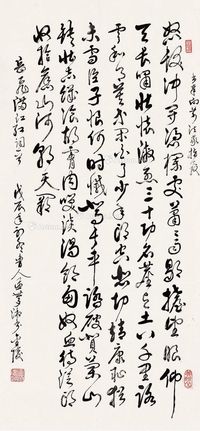 怒髮冲冠憑欄處蕭蕭雨歇擡望眼仰
天長嘯壯懷激烈三十功名塵與土八千里路
雲和月莫等閑白了少年頭空悲切靖康恥猶
未雪臣子恨何時滅駕長車踏破賀蘭山
缺壯志饑餐胡虜肉笑談渴飲匈奴血待從頭
收拾舊山河朝天闕
岳飛滿江紅詞一首 戊辰年